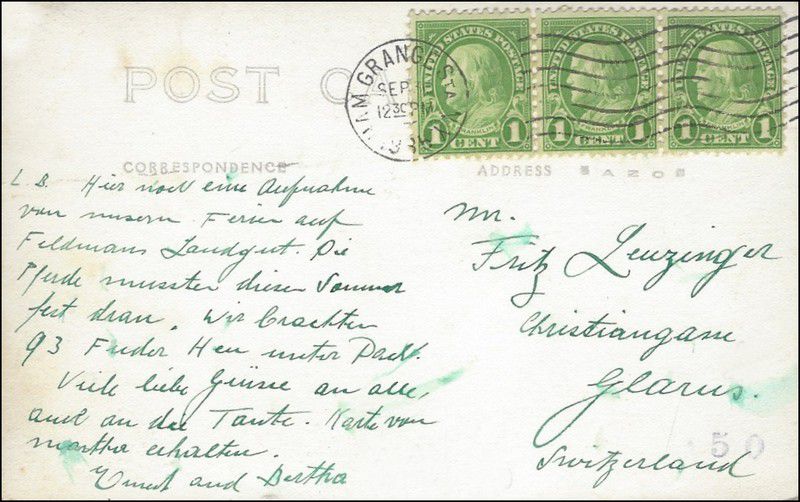 POST C
UNITED STATES POSTAGE
UNITED STATES POSTAGE
UNITED STATES POSTAGE
FRANKLIN
FRANKLIN
FRANKLIN
1 CENT 1
1 CENT 1
1 CENT 1
HAM GRANGE STA.
SEP
12 30 PM
CORRESPONDENCE
ADDRESS
L. B. Hier noch eine Aufnahme
von unsern Ferien auf
Feldmans Landgut. Die
Pferde mussten diesen Sommer
fest dran. Wir brachten
93 Fuder Heu unter Dach.
Viele liebe Grüsse an alle,
auch an die Tante. Karte von
Martha erhalten.
Ernest and Bertha
Mr.
Fritz Leuzinger
Christiangasse
Glarus.
Switzerland
50